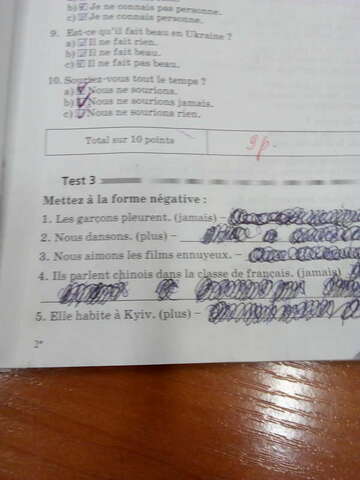 b) Je ne connais pas personne.
c) Je ne connais personne.
9. Est-ce qu'il fait beau en Ukraine ?
a) Il ne fait rien.
b) Il ne fait beau.
c) Il ne fait pas beau.
10. Souriez-vous tout le temps ?
a) Nous ne sourions.
b) Nous ne sourions jamais.
c) Nous ne sourions rien.
Total sur 10 points
Test 3
Mettez à la forme négative :
1. Les garçons pleurent. (jamais) –
2. Nous dansons. (plus) –
3. Nous aimons les films ennuyeux. –
4. Ils parlent chinois dans la classe de français. (jamais)
5. Elle habite à Kyiv. (plus) –
2*